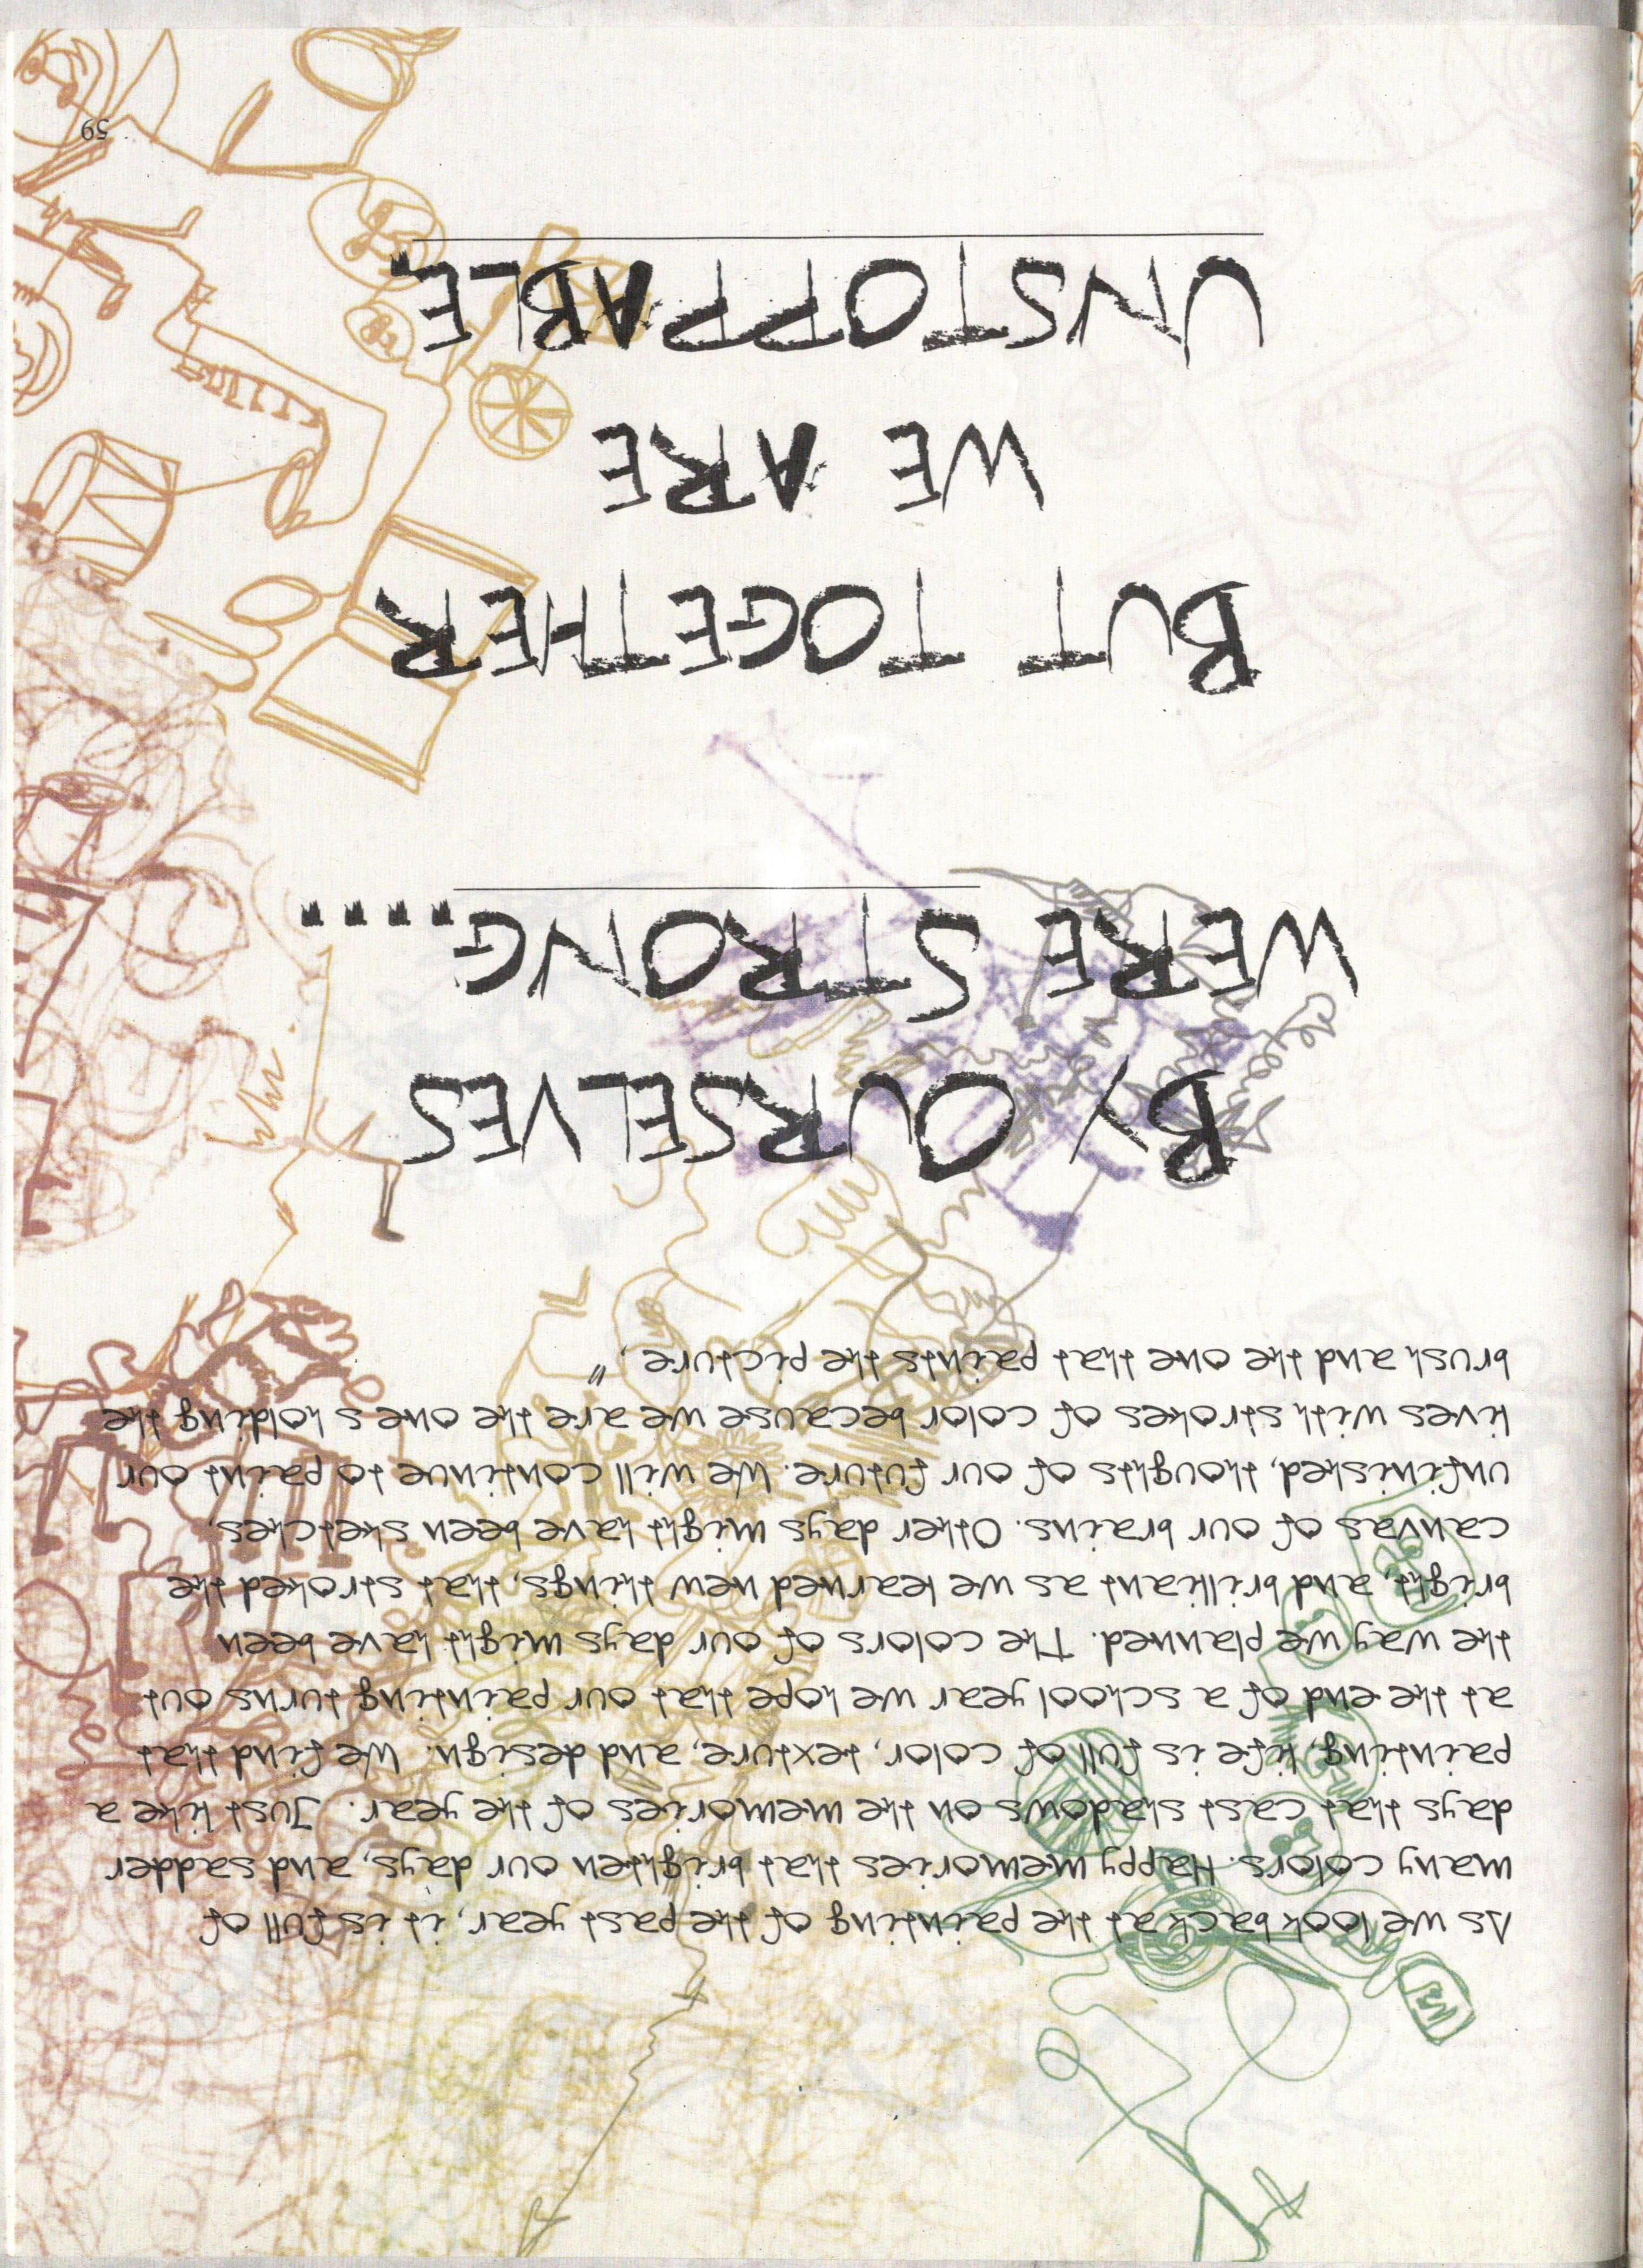 As we look back at the painting of the past year, it is full of
many colors. Happy memories that brighten our days, and sadder
days that cast shadows on the memories of the year. Just like a
painting, life is full of color, texture, and design. We find that
at the end of a school year we hope that our painting turns out
the way we planned. The colors of our days might have been
bright, and brilliant as we learned new things, that stroked the
canvas of our brains. Other days might have been sketches,
unfinished, thoughts of our future. We will continue to paint our
lives with strokes of color because we are the one s holding the
brush and the one that paints the picture. "
BY OURSELVES
WERE STRONG.....
BUT TOGETHER
WE ARE
UNSTOPPABLE."
59